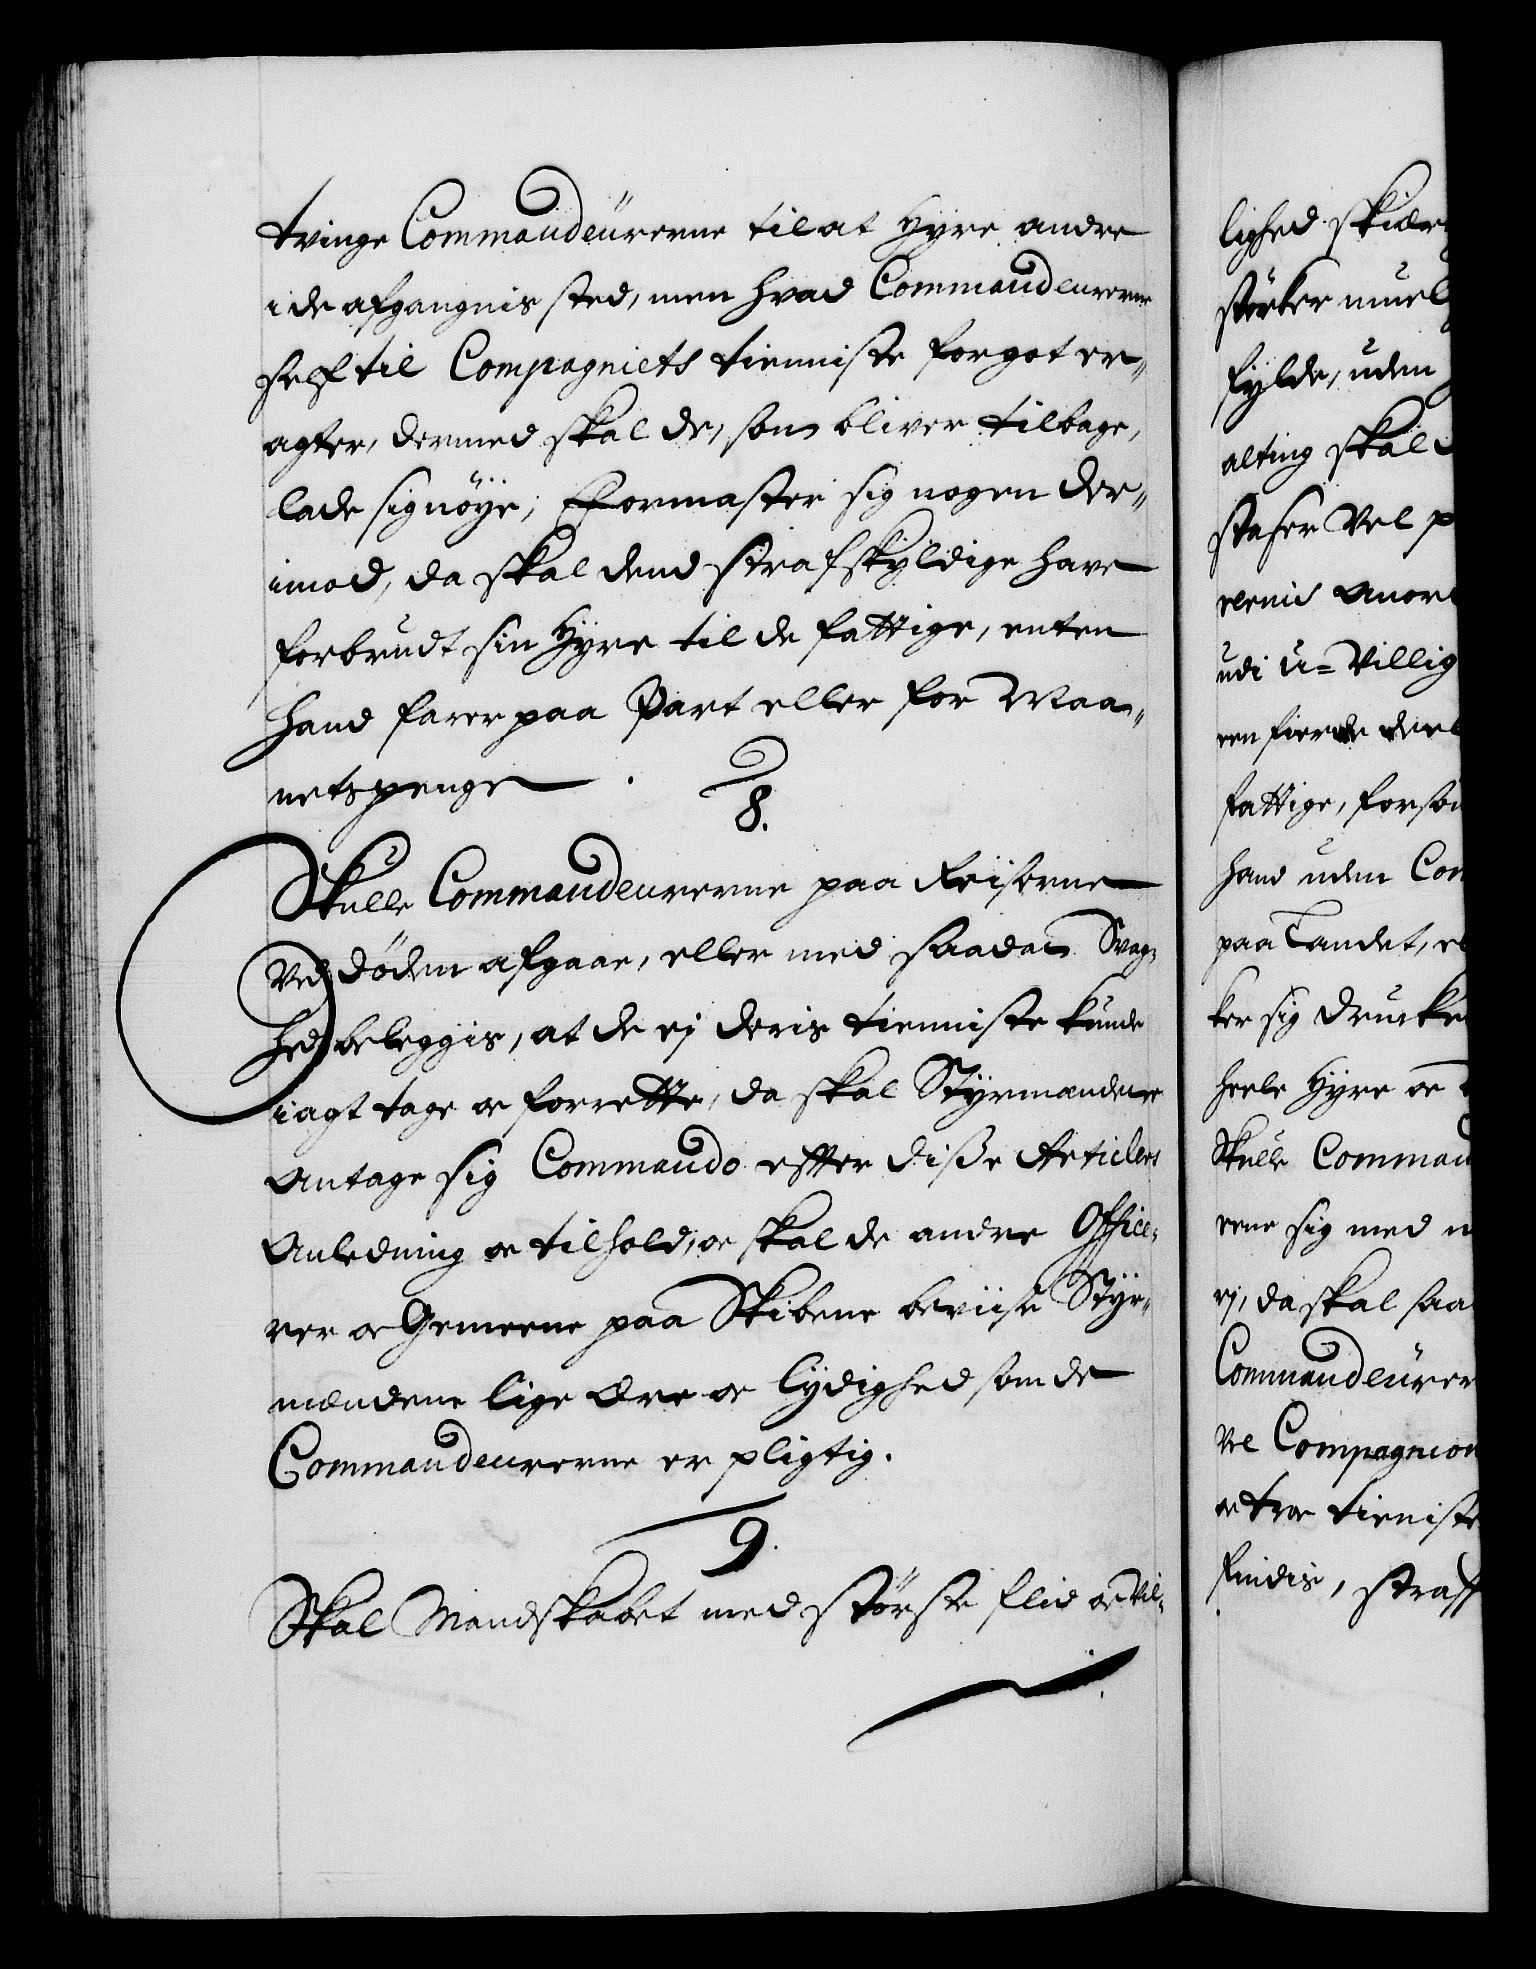 tvinge Commandeürerne til at Hyre andre
i de afgangnis sted, men hvad Commandeurerne
self til Compagniets tienniste for got er„
agter, dermed skal de, som bliver tilbage,
lade sig nöye; Formaster sig nogen der„
imod, da skal dend strafskyldige have
forbrudt sin Hyre til de fattige, enten
hand farer paa Part eller for Maa„
netspenge.
8.
Skulle Commandeurerne paa Reiserne
ved döden afgaae, eller med saadan Svag„
hed beleggis, at de ej deris tienniste kunde
iagt tage oc forrette, da skal Styrmændene
Antage sig Commando efter diße Articlers
Anledning oc tilhold, oc skal de andre Office„
rer oc Gemeene paa Skibene beviise Styr„
mændene lige Ære oc lydighed som de
Commandeurerne er pligtig.
9.
Skal Mandskabet med störste flid oc Vil„
lighed skiær
störker
fylde, uden
alting skal
Vel p
udi U=Villig
een fierde deel
fattige, forsöm
hand uden Com
paa Landet, el
ker sig drucke
heele Hyre oc
Skulle Comman
rene sig med n
ej, da skal saa
Commandeürer
vel Compagnon
oc troe tieniste
findis, straff